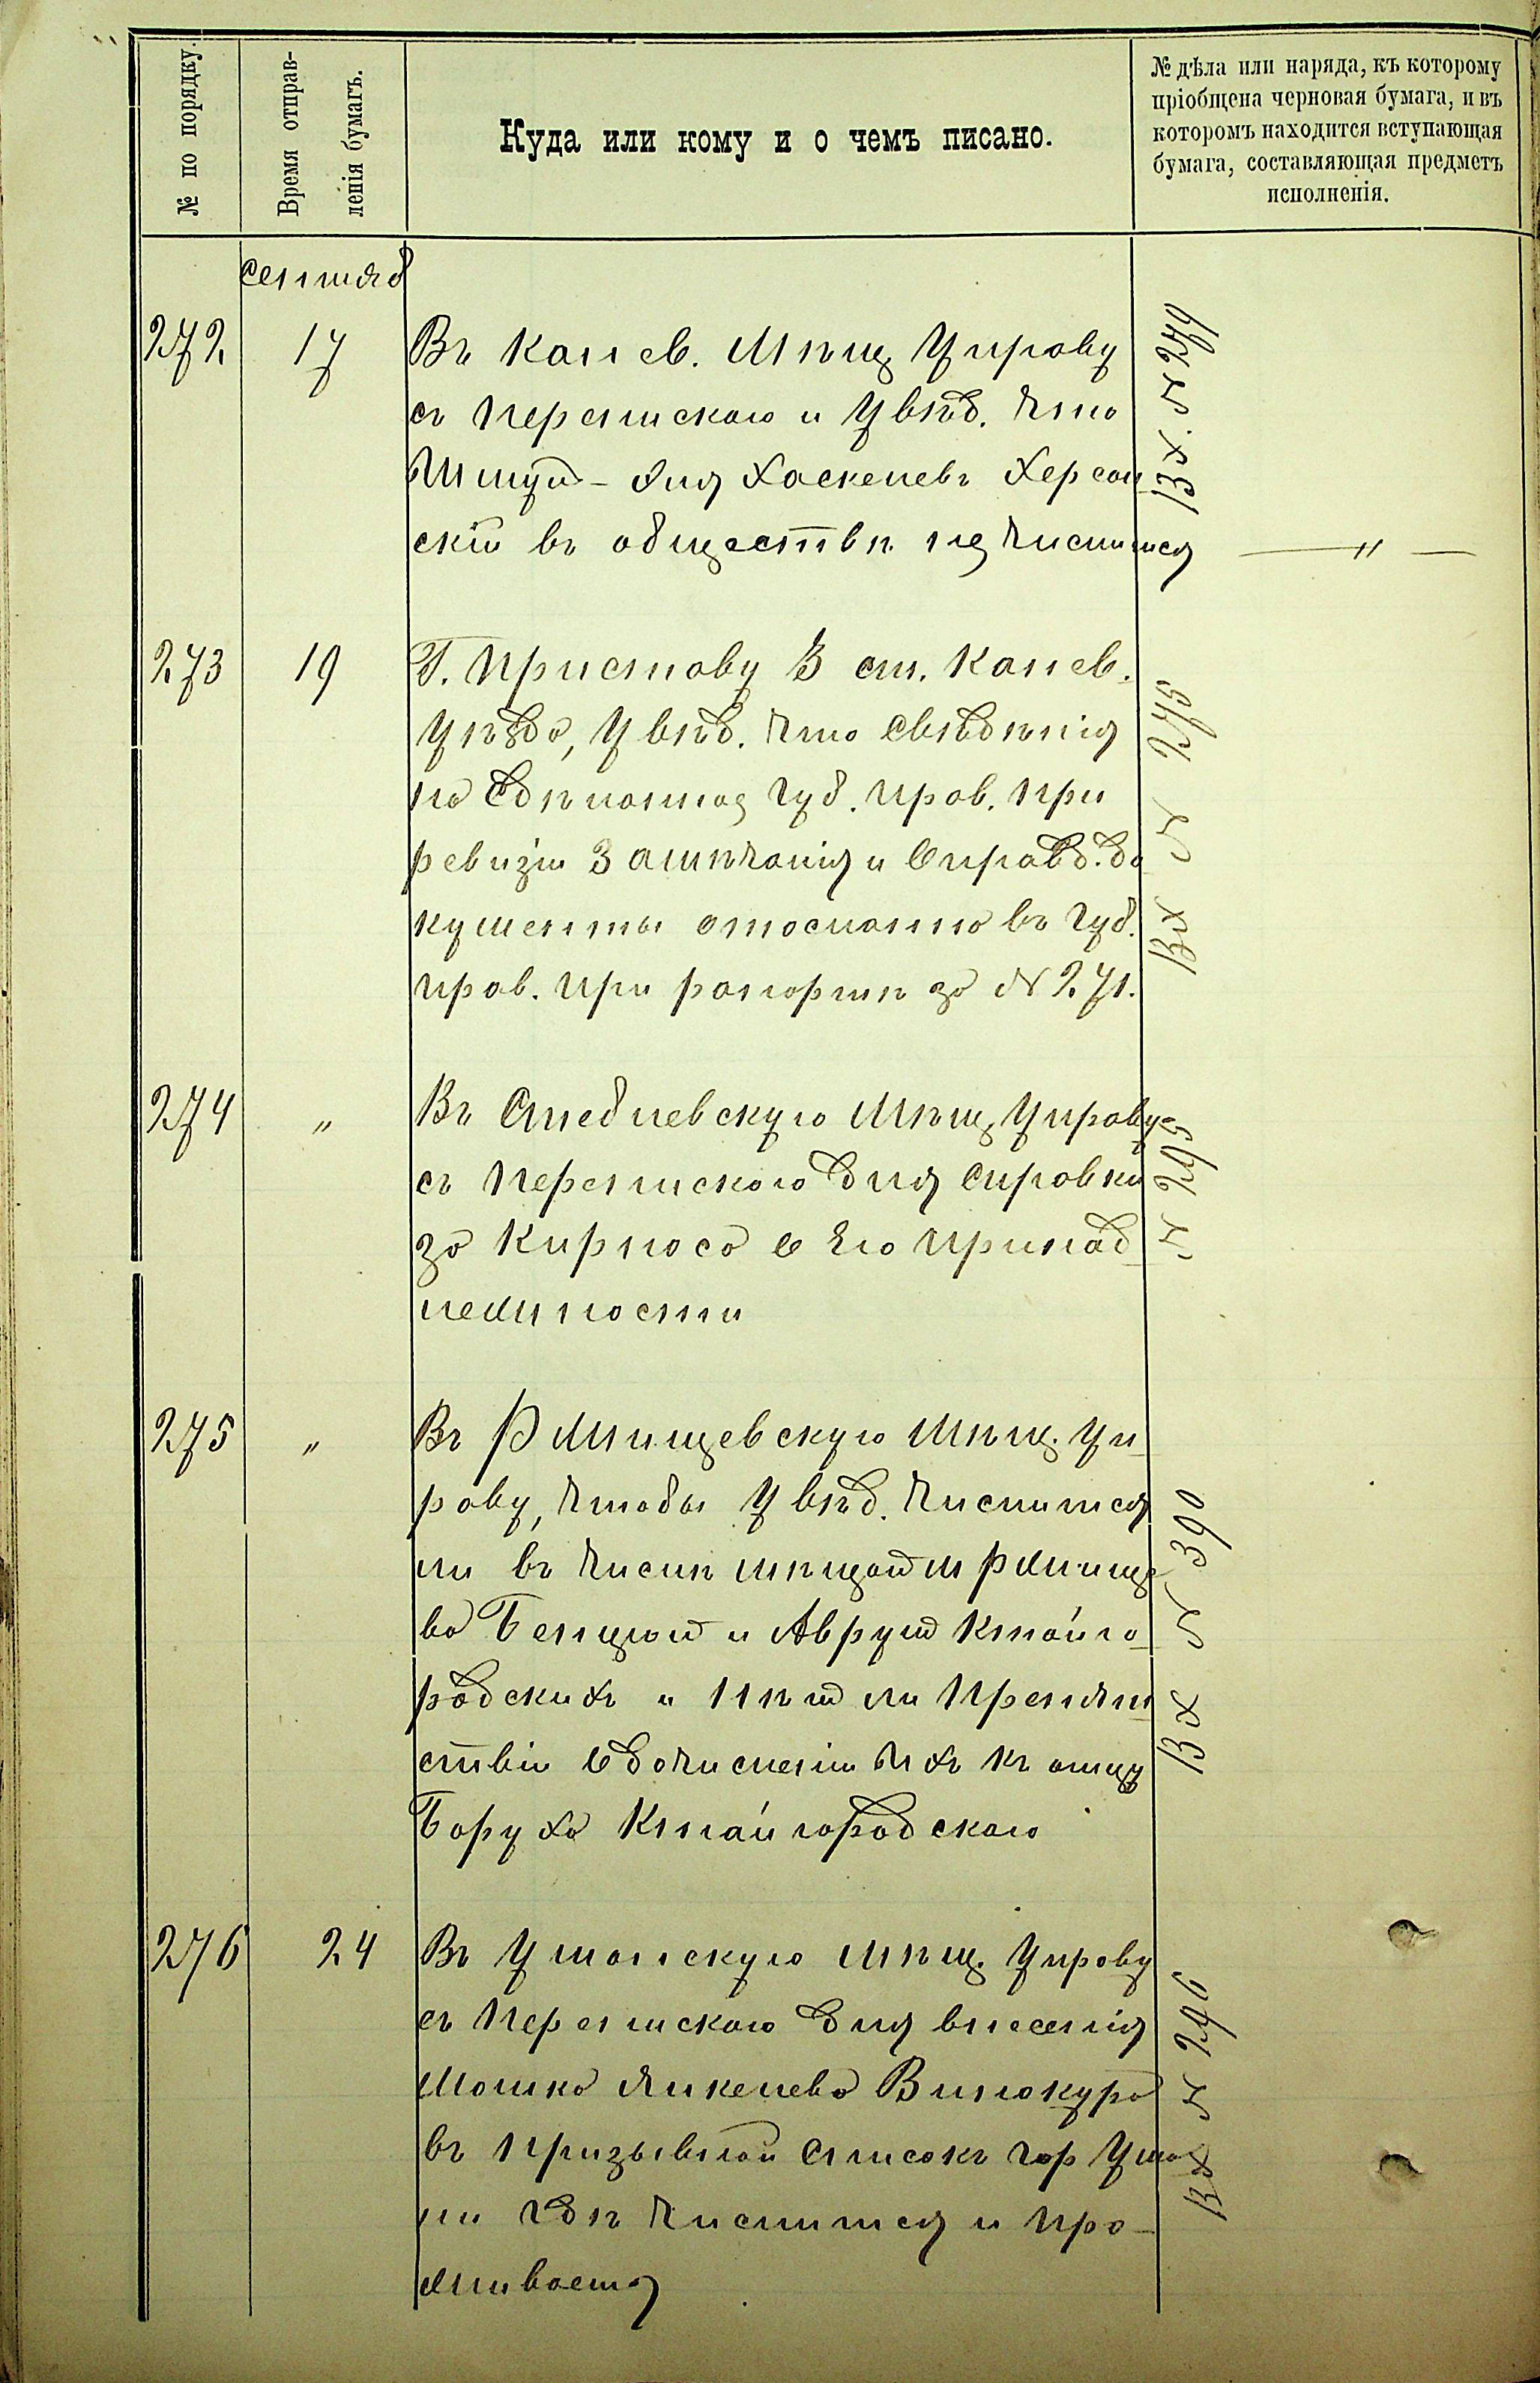 № по порядку.
Время отправ-
ленія бумагъ.
Куда или кому и о чемъ писано.
№ дѣла или наряда, къ которому
пріобщена черновая бумага, и въ
которомъ находится вступающая
бумага, составляющая предметъ
исполненія.
сентяб
272 17 Въ Канев. Мѣщ Управу
съ перепискою и увѣд. что
Хаскелевъ Херсон
скій въ обществѣ не числится
Вх. № 279
— " —
273 19 Г. Приставу 3 ст. Канев.
уѣзда, увѣд. что свѣдѣнія
на сдѣланная Губ. прав. при
ревизіи замѣчанія и оправд. до
кументы отосланно въ Губ.
прав. при рапортѣ за № 271.
Вх № 275
274 " Въ Стеблевскую Мѣщ. Управу
съ перепискою для справки
за Кирноса о его принад
лежности
№ 295
275 " Въ Ржищевскую Мѣщ. Уп-
раву, чтобы увѣд. числится
ли въ числѣ мѣщан м Ржище
ва Бенцион и Аврум Китайго-
родских и нѣт ли препят-
ствій о дочислении их къ отцу
Боруха Китайгородскаго
Вх № 390
276 24 Въ Уманскую Мѣщ. Управу
съ перепискою для внесенія
Мошка Янкелева Винокура
въ призывной список гор Ума
ни гдѣ числится и про-
живает
Вх № 296